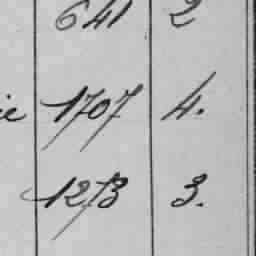 641 2
ie 1707 4.
1273 3.